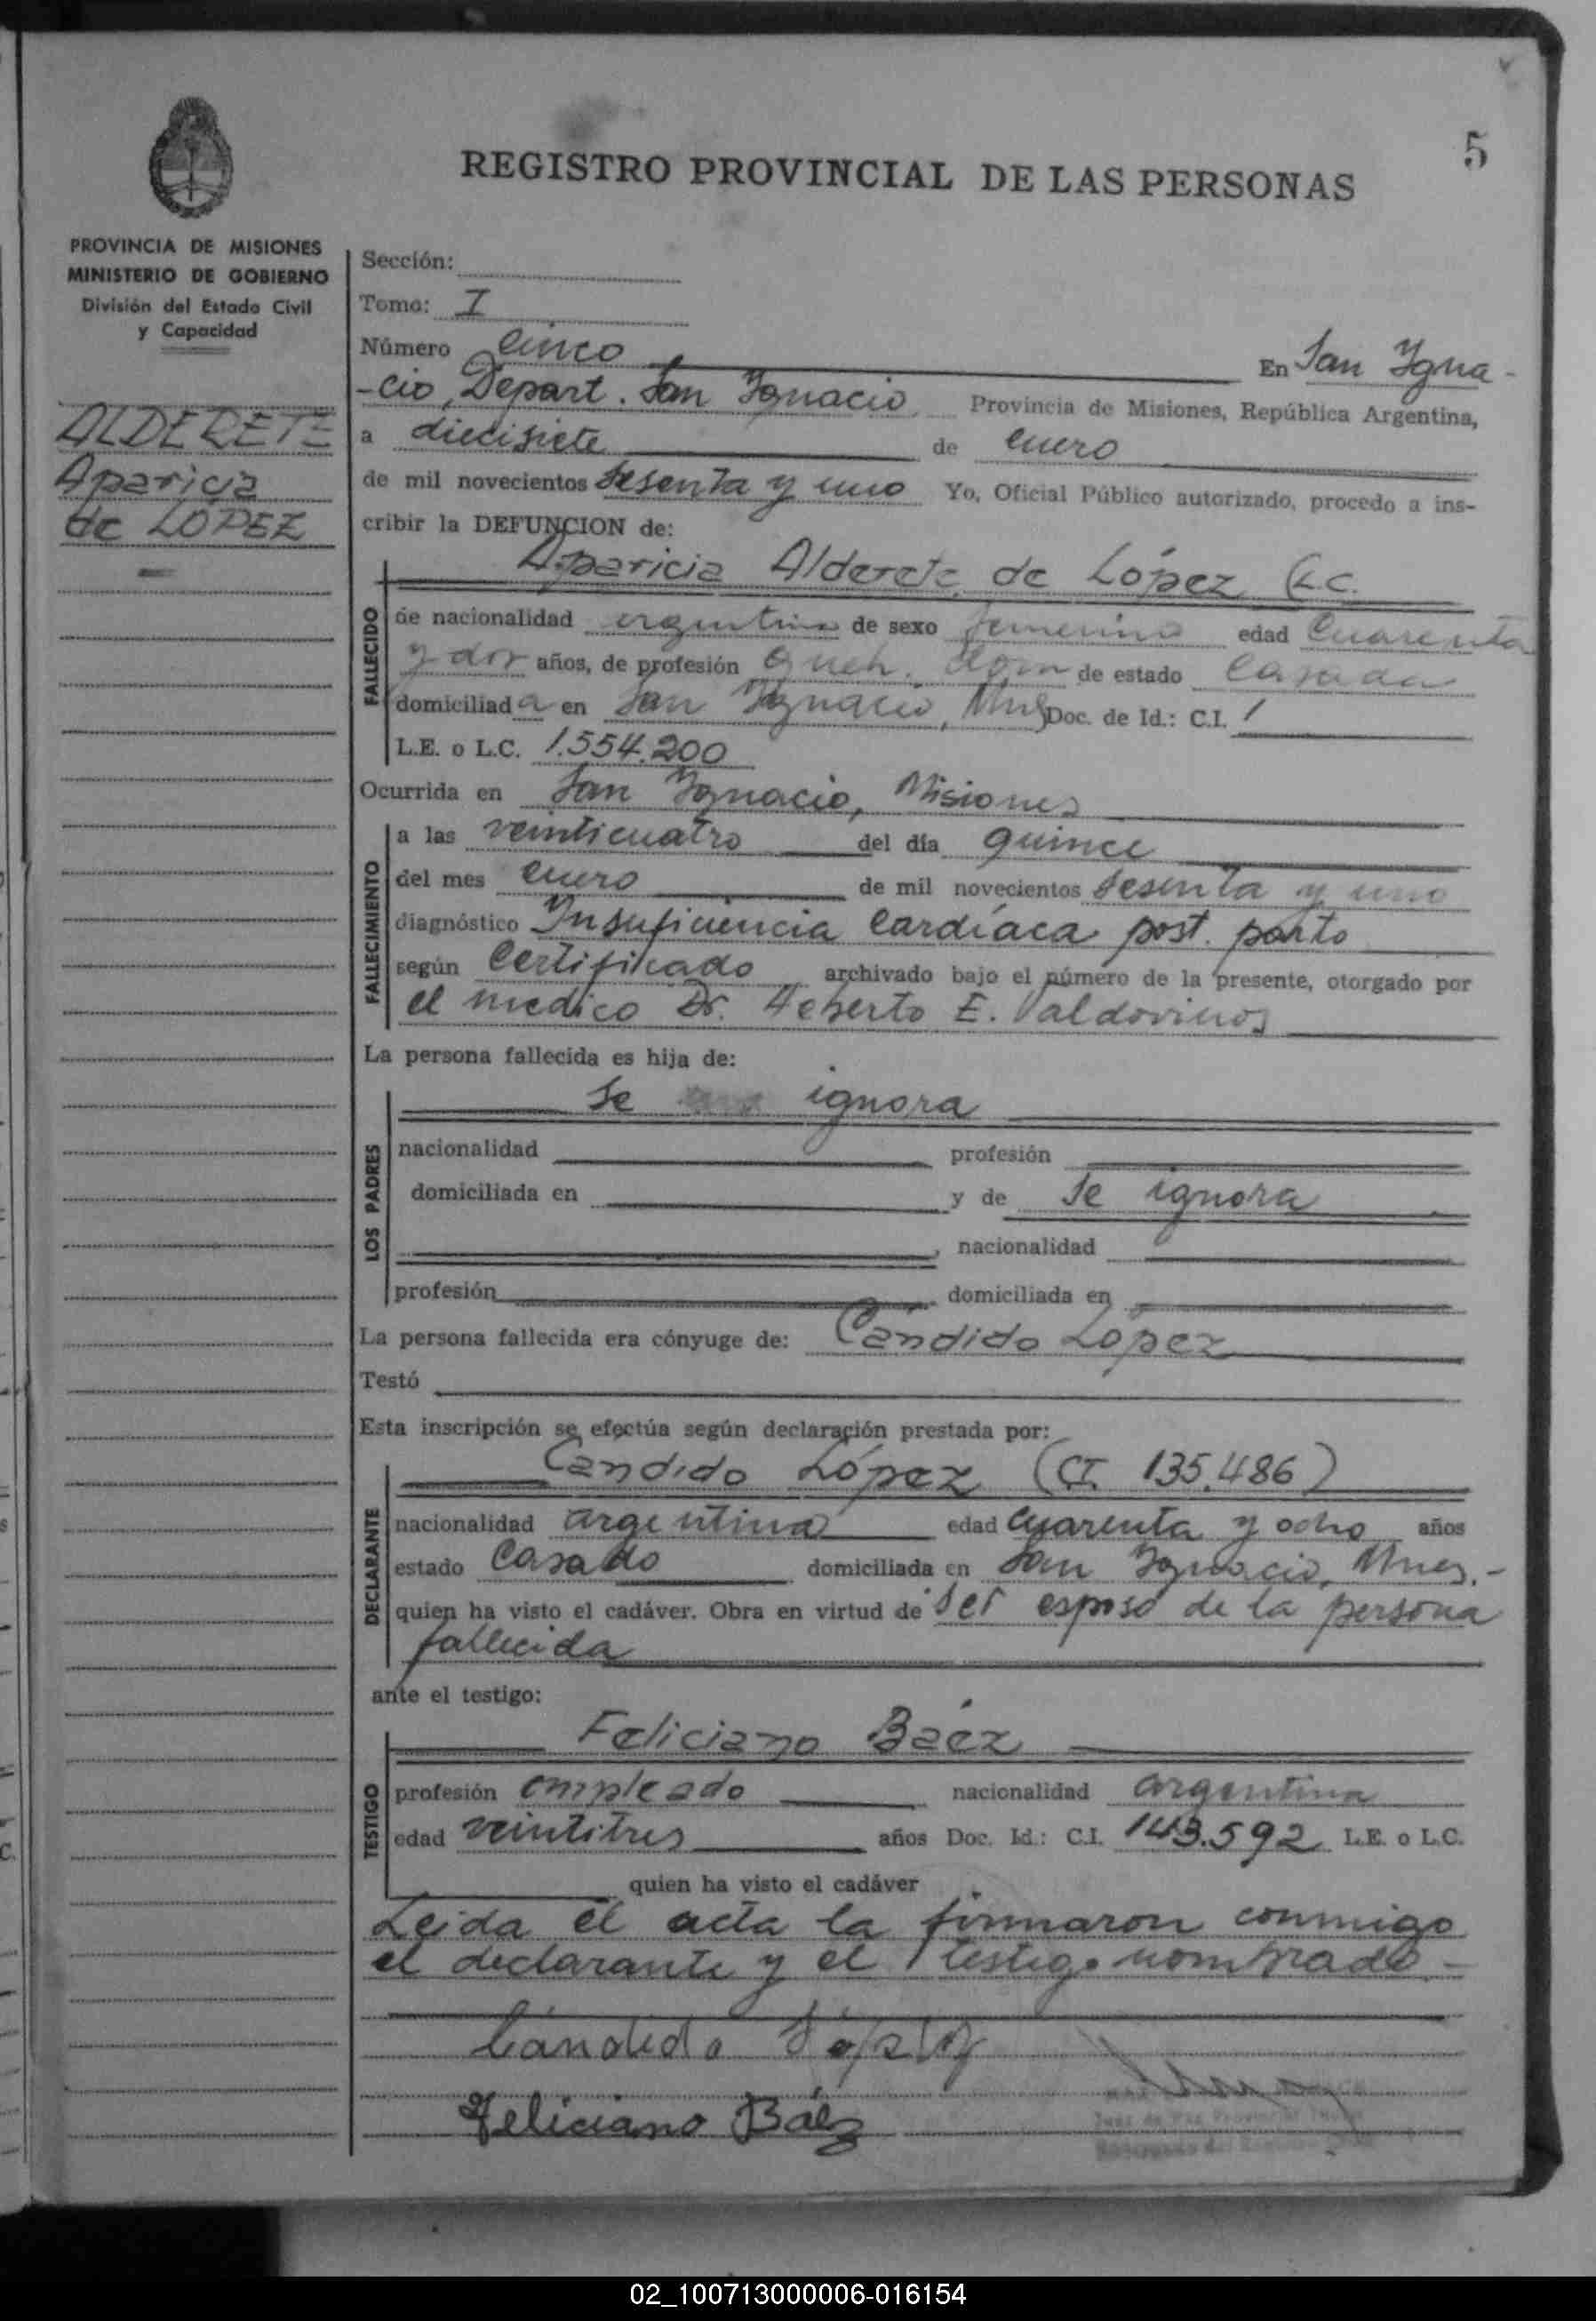 5
REGISTRO PROVINCIAL DE LAS PERSONAS
PROVINCIA DE MISIONES
MINISTERIO DE GOBIERNO
División del Estado Civil
y Capacidad
ALDERETE
Aparicia
de LÓPEZ
Sección:
Tomo: I
Número cinco En San Igna-
-cio, Depart. San Ignacio, Provincia de Misiones, República Argentina,
a diecisiete de enero
de mil novecientos sesenta y uno Yo, Oficial Público autorizado, procedo a ins-
cribir la DEFUNCION de:
Aparicia Alderete de López (L.C.
FALLECIDO
de nacionalidad argentina de sexo femenino edad cuarenta
y dos años, de profesión Queh. dom de estado casada
domiciliada en San Ignacio, Mnes Doc. de Id.: C.I. /
L.E. o L.C. 1.554.200
Ocurrida en San Ignacio, Misiones
FALLECIMIENTO
a las veinticuatro del día quince
del mes enero de mil novecientos sesenta y uno
diagnóstico Insuficiencia cardíaca post. parto
según certificado archivado bajo el número de la presente, otorgado por
el medico Dr. Heberto E. Valdovinos
La persona fallecida es hija de:
LOS PADRES
se ignora
nacionalidad profesión
domiciliada en y de se ignora
, nacionalidad
profesión domiciliada en
La persona fallecida era cónyuge de: Cándido López
Testó
Esta inscripción se efectúa según declaración prestada por:
DECLARANTE
Candido López (CI. 135.486)
nacionalidad argentina edad cuarenta y ocho años
estado casado domiciliada en San Ignacio, Mnes.-
quien ha visto el cadáver. Obra en virtud de ser esposo de la persona
fallecida
ante el testigo:
TESTIGO
Feliciano Báez
profesión empleado nacionalidad argentina
edad veintitres años Doc. Id.: C.I. 143.592 L.E. o L.C.
quien ha visto el cadáver
Leida el acta la firmaron conmigo
el declarante y el testigo nombrado.-
Cándido López
Feliciano Báez
02_100713000006-016154